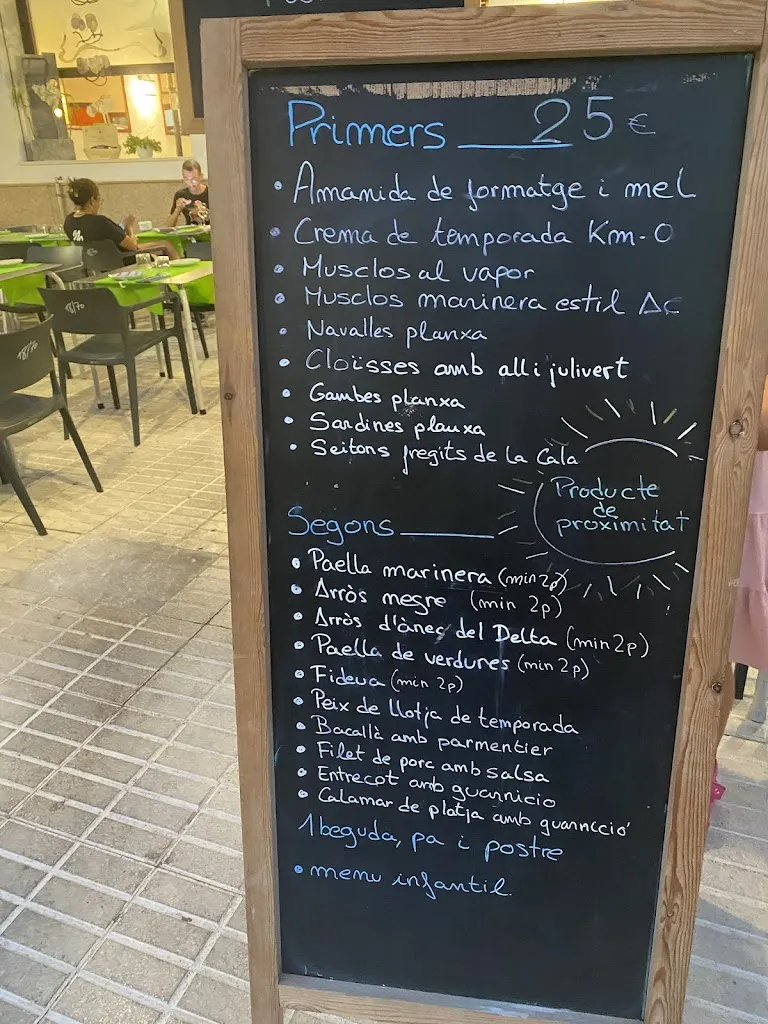 Primers 25 €
• Amanida de formatge i mel
• Crema de temporada Km-0
• Musclos al vapor
• Musclos marinera estil
• Navalles planxa
• Cloïsses amb all i julivert
• Gambes planxa
• Sardines planxa
• Seitons fregits de la Cala
Producte
de
proximitat
Segons
• Paella marinera (min 2p)
• Arròs negre (min 2p)
• Arròs d'ànec del Delta (min 2p)
• Paella de verdures (min 2p)
• Fideua (min 2p)
• Peix de llotja de temporada
• Bacallà amb parmentier
• Filet de porc amb salsa
• Entrecot amb guarnicio
• Calamar de platja amb guarnició
1 beguda, pa i postre
• menu infantil